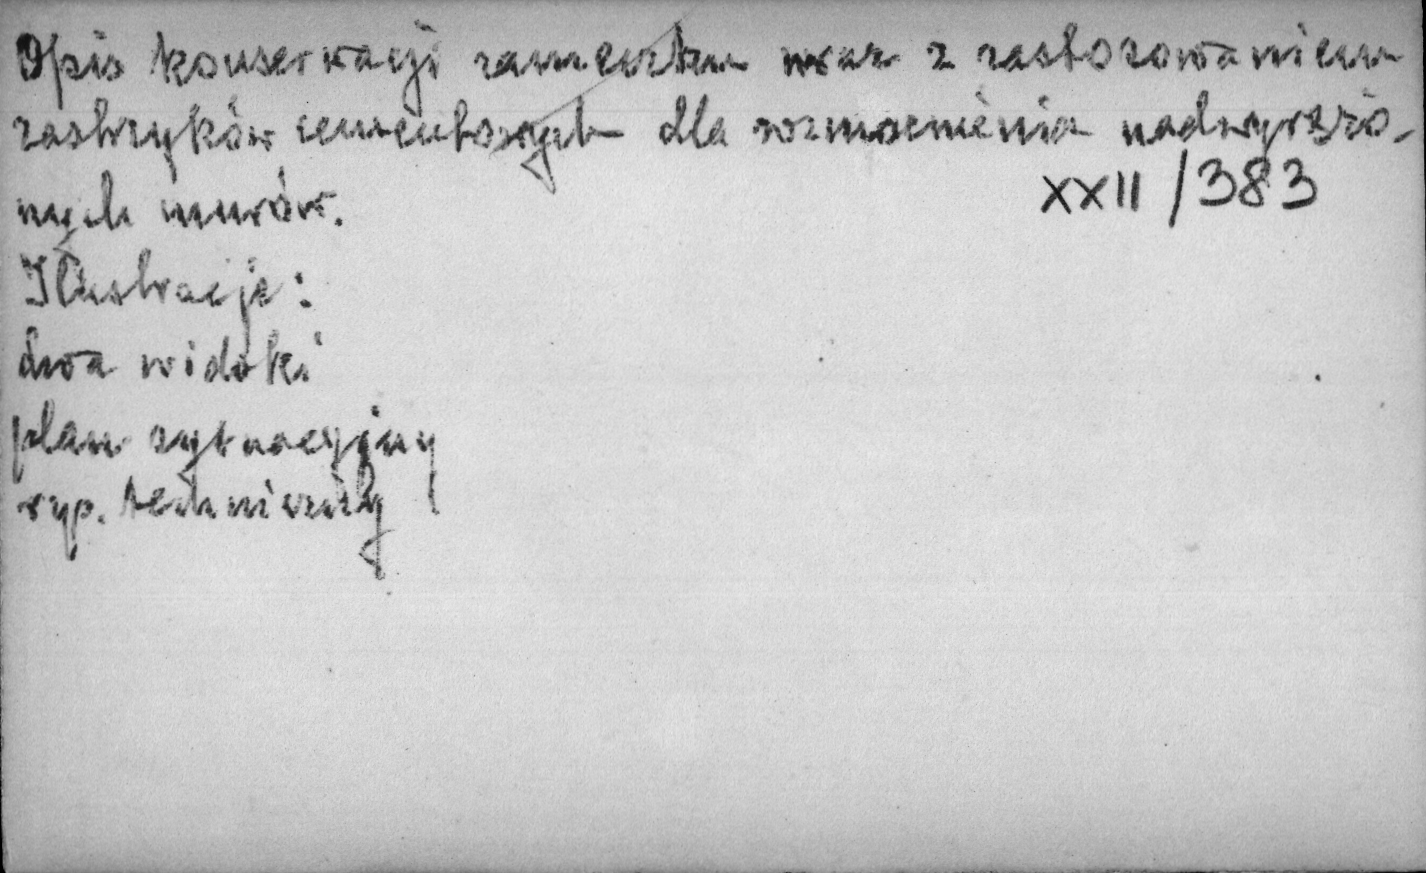 Opis konserwacji zameczku wraz z zastosowaniem
zastrzyków cementowych dla wzmocnienia nadwyrężo-
nych murów.
XXII/383
Ilustracje:
dwa widoki
plan sytuacyjny
rys. techniczny